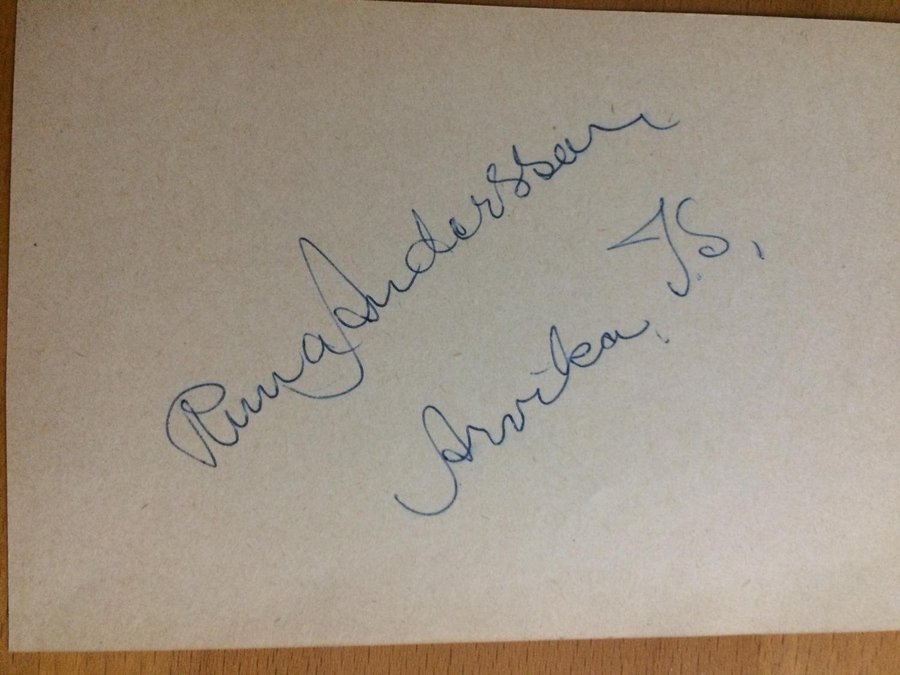 Runa Andersson
Arvika, I.S.